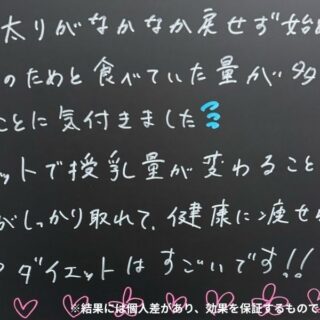 太りがなかなか戻せず始め
のためと食べていた量が多
ことに気付きました
ットで授乳量が変わること
がしっかり取れて、健康に痩せ
ダイエットはすごいです!!
※結果には個人差があり、効果を保証するもので